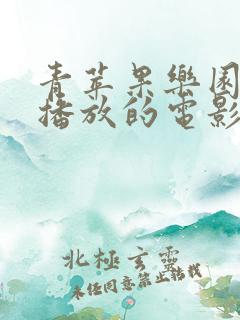 青苹果樂園
播放的電影
北極玄靈
未经同意禁止转载